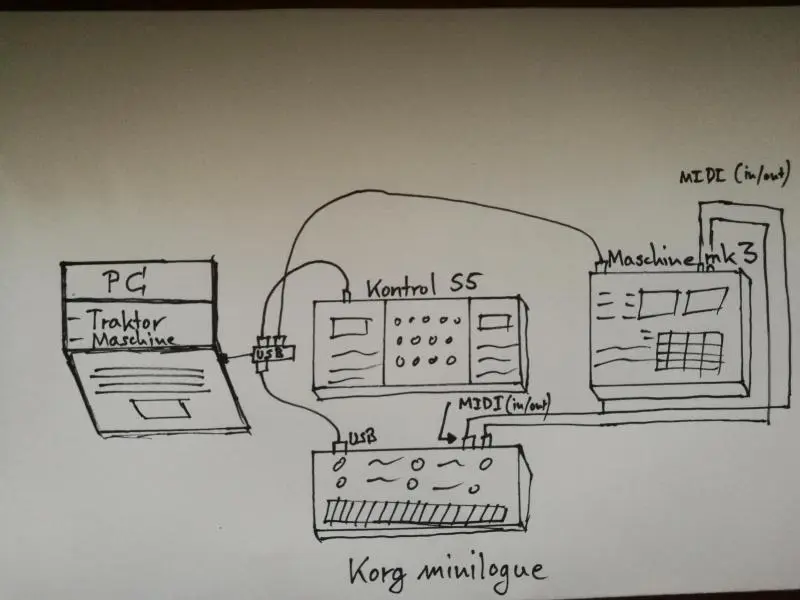 MIDI (in/out)
Maschine mk3
PC
Kontrol S5
- Traktor
- Maschine
USB
MIDI (in/out)
USB
Korg minilogue